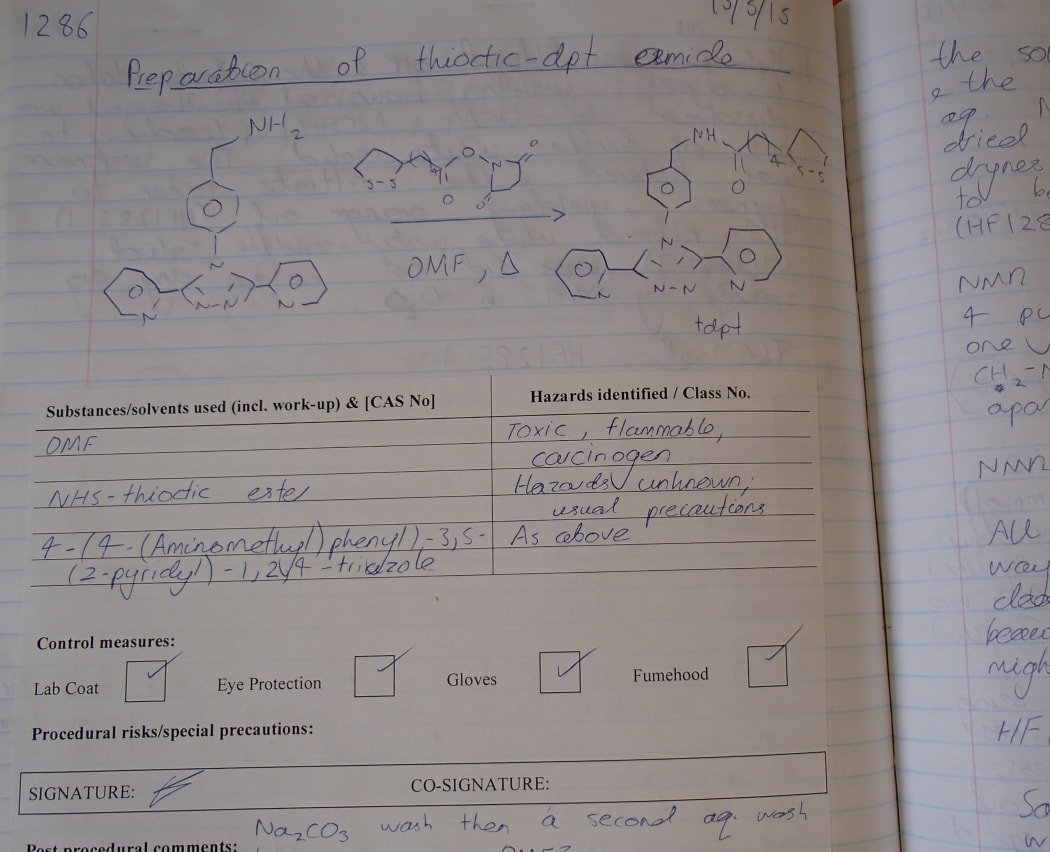 1286
13/5/15
Preparation of thioctic-dpt amide
NH2
S-S
4
O
O
N
O
O
N
N-N
N
N
DMF, Δ
NH
O
4
S-S
N
N-N
N
N
tdpt
Substances/solvents used (incl. work-up) & [CAS No]
Hazards identified / Class No.
DMF
Toxic, flammable,
carcinogen
NHS-thioctic ester
Hazards unknown;
usual precautions
4-(4-(Aminomethyl)phenyl)-3,5-
(2-pyridyl)-1,2,4-triazole
As above
Control measures:
Lab Coat
Eye Protection
Gloves
Fumehood
Procedural risks/special precautions:
SIGNATURE:
CO-SIGNATURE:
Na2CO3 wash then a second aq. wash
Post procedural comments:
DMF?
the
& the
aq.
dried
to
(HF128
NMR
4
one
CH2-N
NMR
All
way
HF